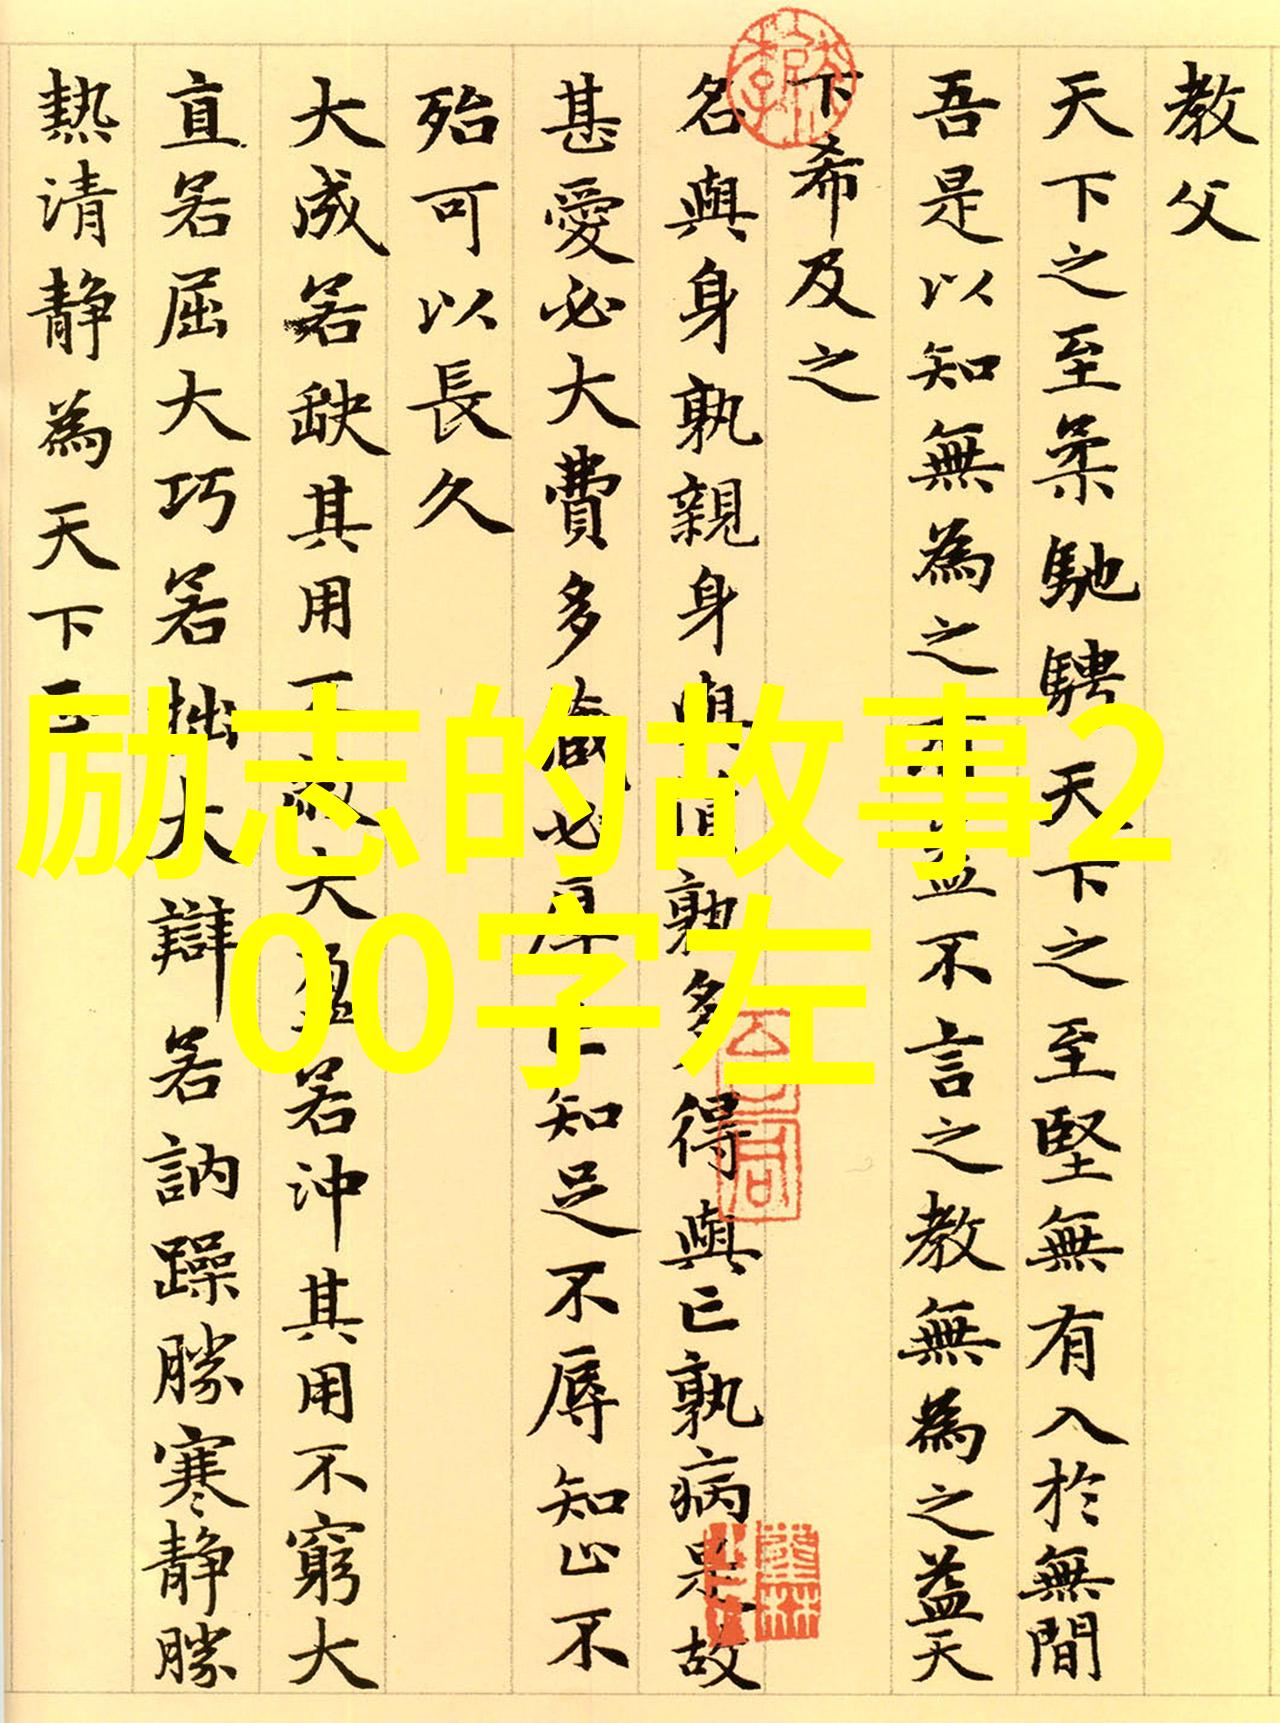 教父
天下之至柔馳騁天下之至堅無有入於無間
吾是以知無為之有益不言之教無為之益天
下希及之
名與身孰親身與貨孰多得與亡孰病是故
甚愛必大費多藏必厚亡知足不辱知止不
殆可以長久
大成若缺其用不敝大盈若沖其用不窮大
直若屈大巧若拙大辯若訥躁勝寒静勝
熱清静為天下正
励志的故事2
00字左